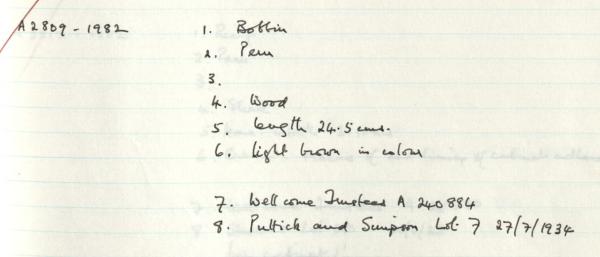 A2809-1982 1. Bobbin
2. Peru
3.
4. Wood
5. length 24.5 cms.
6. Light brown in colour
7. Wellcome Trustees A 240884
8. Puttick and Simpson Lot 7 27/7/1934